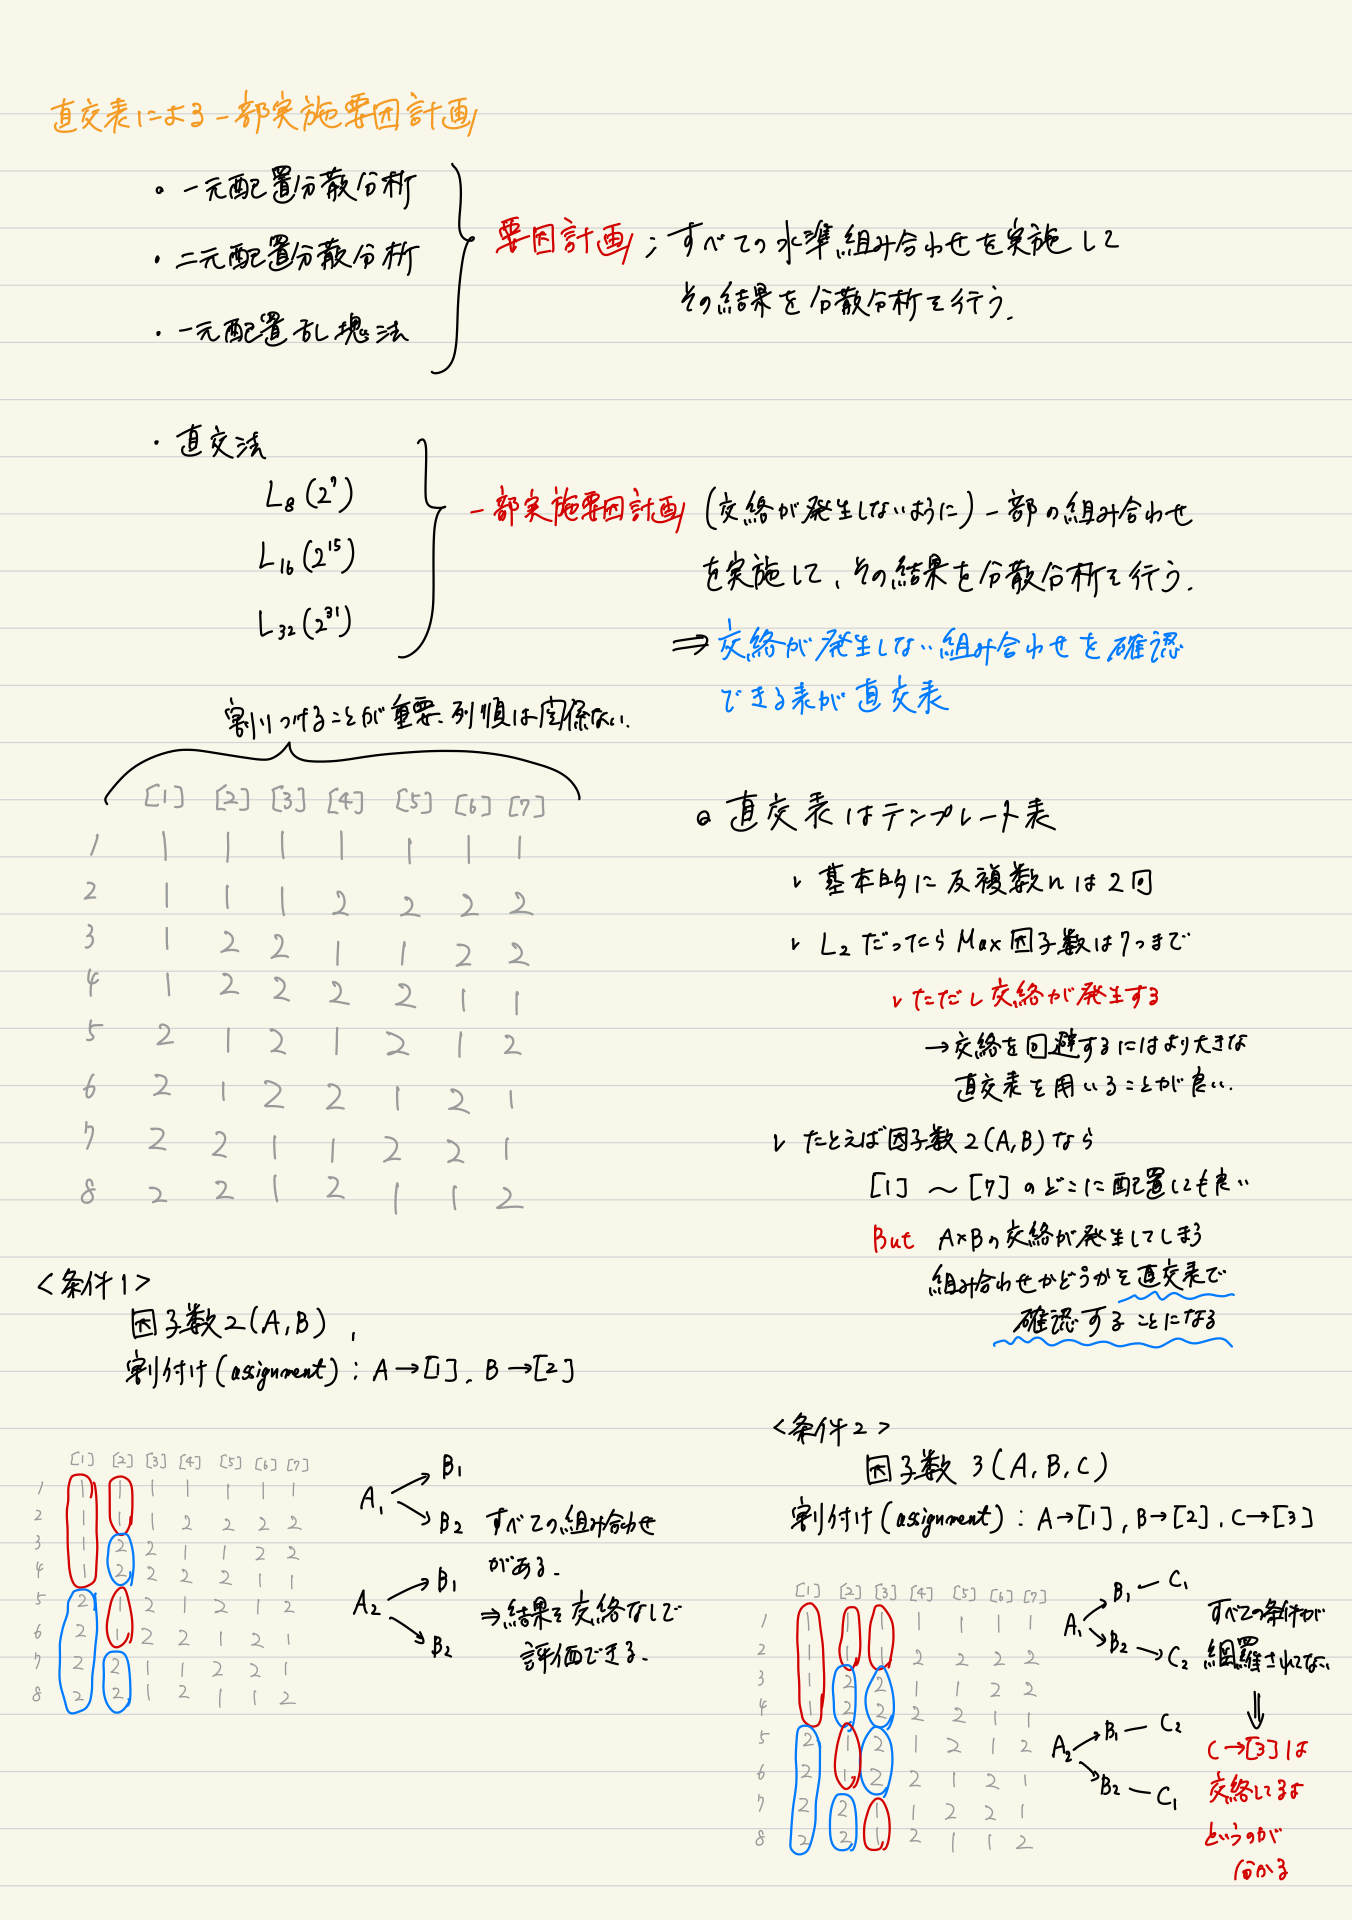 直交表による一部実施要因計画
・一元配置分散分析
・二元配置分散分析
・一元配置乱塊法
要因計画；すべての水準組み合わせを実施して
その結果を分散分析を行う.
・直交法
L8(2^7)
L16(2^15)
L32(2^31)
一部実施要因計画 (交絡が発生しないように)一部の組み合わせ
を実施して、その結果を分散分析を行う.
⇒ 交絡が発生しない組み合わせを確認
できる表が直交表
割りつけることが重要、列順は関係ない.
[1] [2] [3] [4] [5] [6] [7]
1 1 1 1 1 1 1 1
2 1 1 1 2 2 2 2
3 1 2 2 1 1 2 2
4 1 2 2 2 2 1 1
5 2 1 2 1 2 1 2
6 2 1 2 2 1 2 1
7 2 2 1 1 2 2 1
8 2 2 1 2 1 1 2
直交表はテンプレート表
基本的に反複数nは2回
L2だったらMax因子数は7つまで
ただし交絡が発生する
→交絡を回避するにはより大きな
直交表を用いることが良い.
たとえば因子数2(A,B)なら
[1] ～ [7]のどこに配置しても良い
But A×Bの交絡が発生してしまう
組み合わせかどうかを直交表で
確認することになる
<条件1>
因子数2(A,B),
割付け(assignment): A→[1], B→[2]
[1] [2] [3] [4] [5] [6] [7]
1 1 1 1 1 1 1 1
2 1 1 1 2 2 2 2
3 1 2 2 1 1 2 2
4 1 2 2 2 2 1 1
5 2 1 2 1 2 1 2
6 2 1 2 2 1 2 1
7 2 2 1 1 2 2 1
8 2 2 1 2 1 1 2
A1 B1
B2
A2 B1
B2
すべての組み合わせ
がある.
⇒結果を交絡なしで
評価できる.
<条件2>
因子数 3(A,B,C)
割付け(assignment): A→[1], B→[2], C→[3]
[1] [2] [3] [4] [5] [6] [7]
1 1 1 1 1 1 1 1
2 1 1 1 2 2 2 2
3 1 2 2 1 1 2 2
4 1 2 2 2 2 1 1
5 2 1 2 1 2 1 2
6 2 1 2 2 1 2 1
7 2 2 1 1 2 2 1
8 2 2 1 2 1 1 2
A1 B1 — C1
B2 → C2
A2 B1 — C2
B2 — C1
すべての条件が
網羅されてない
⇓
C→[3]は
交絡してるよ
というのが
分かる